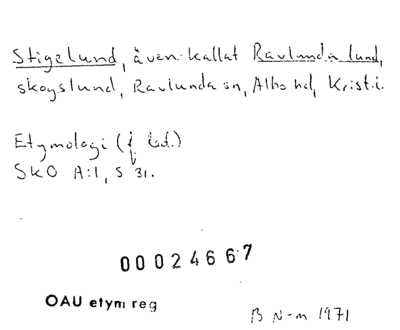 Stigelund, även kallat Ravlunda lund,
skogslund, Ravlunda sn, Albo hd, Krist.l.
Etymologi (f. led.)
SkO A:1, s 31.
00024667
OAU etym reg
B N-m 1971